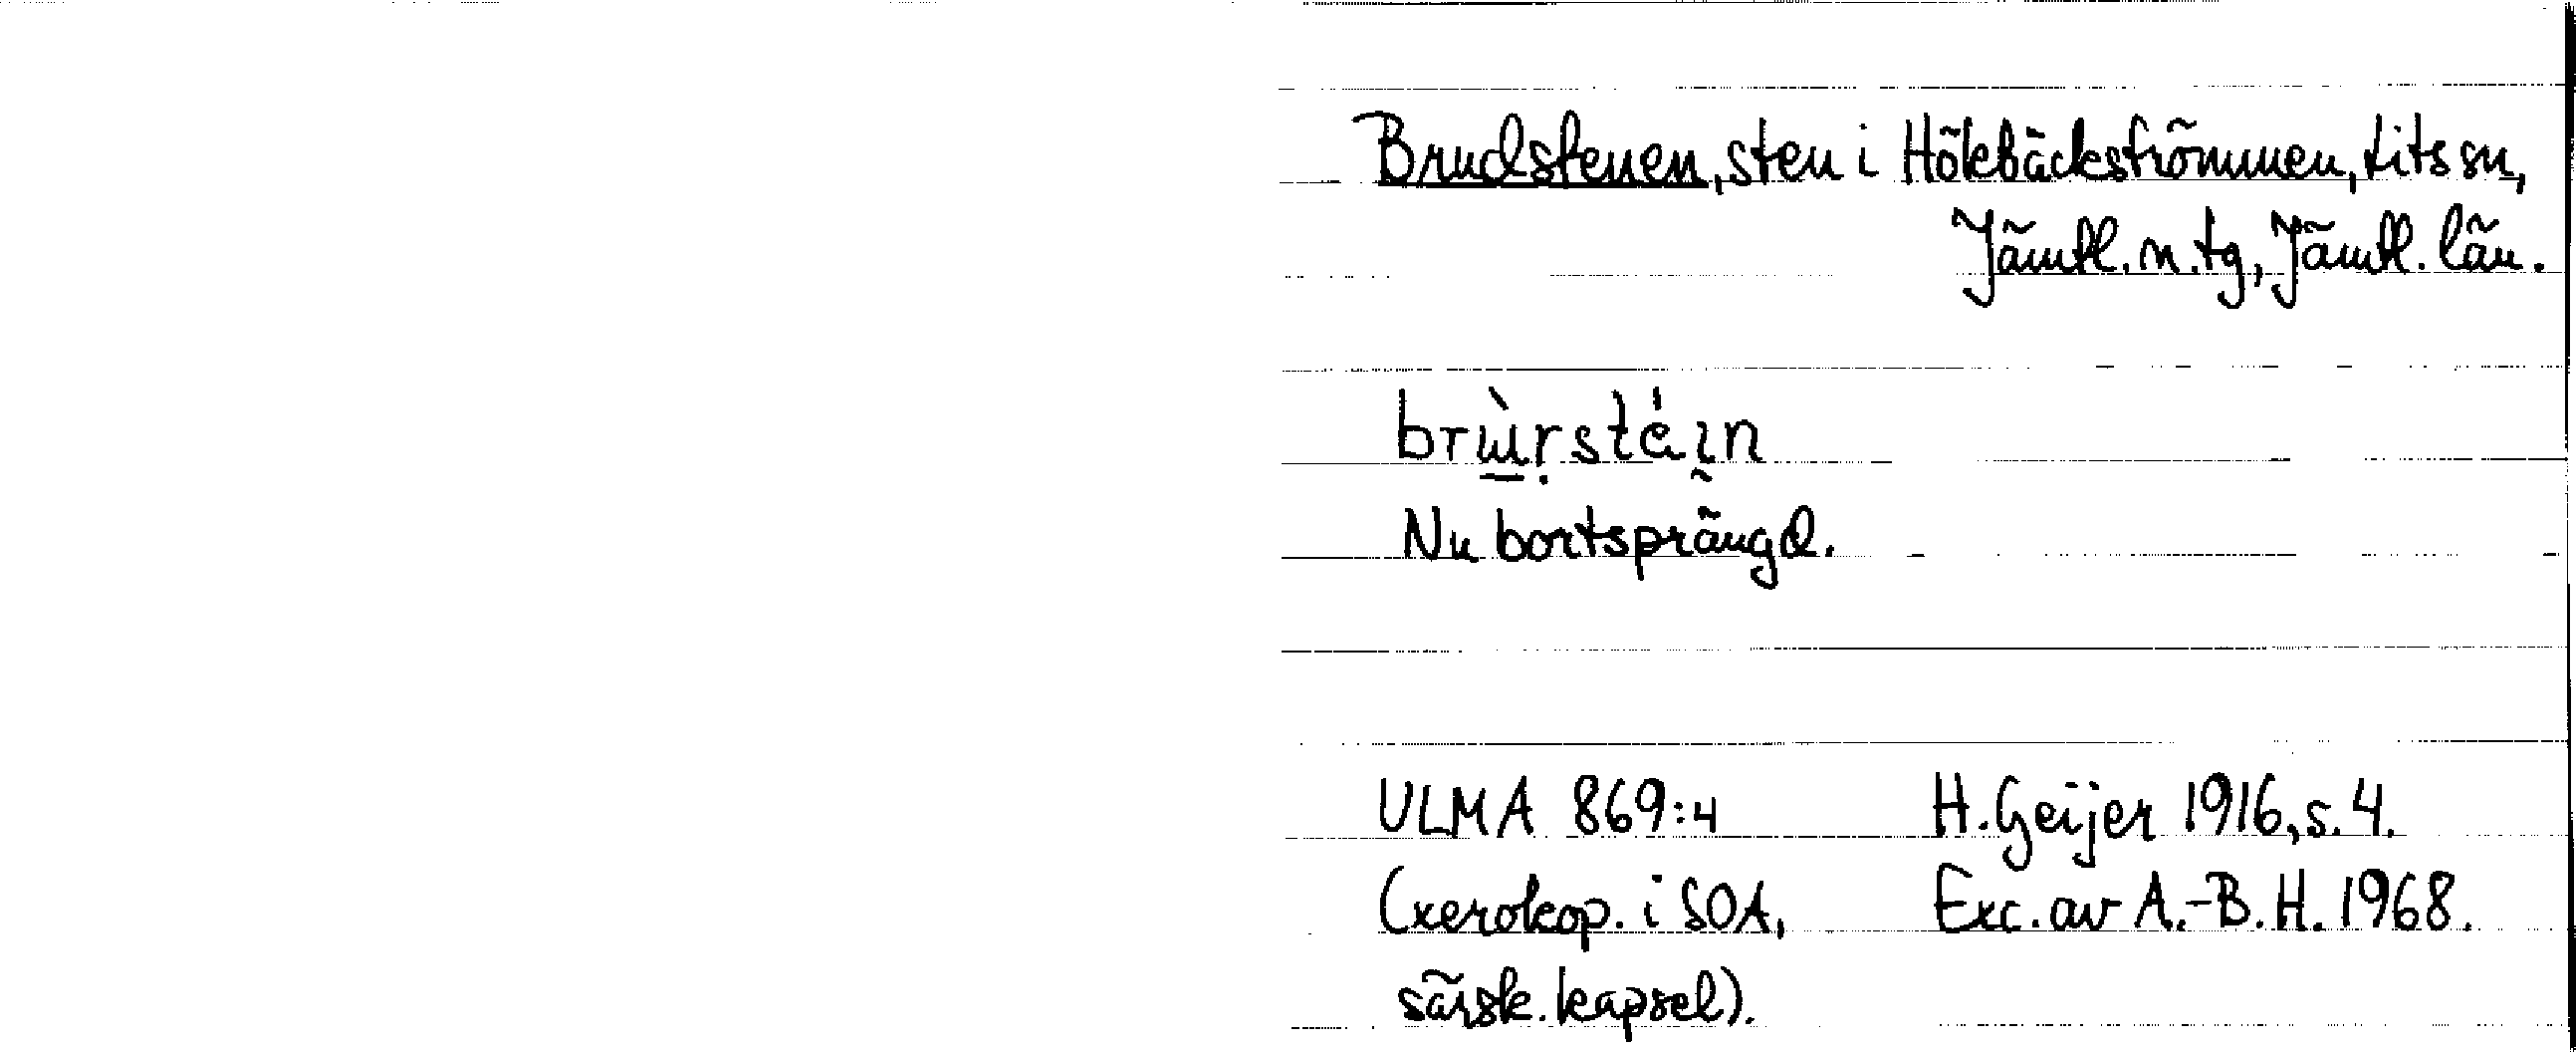 Brudstenen, sten i Hökbäckströmmen, Lits sn,
Jämtl. n. tg, Jämtl. län.
Nu bortsprängd.
ULMA 869:4 H. Geijer 1916, s. 4.
(xerokop. i SOA, Exc. av A.-B. H. 1968.
särsk. kapsel).